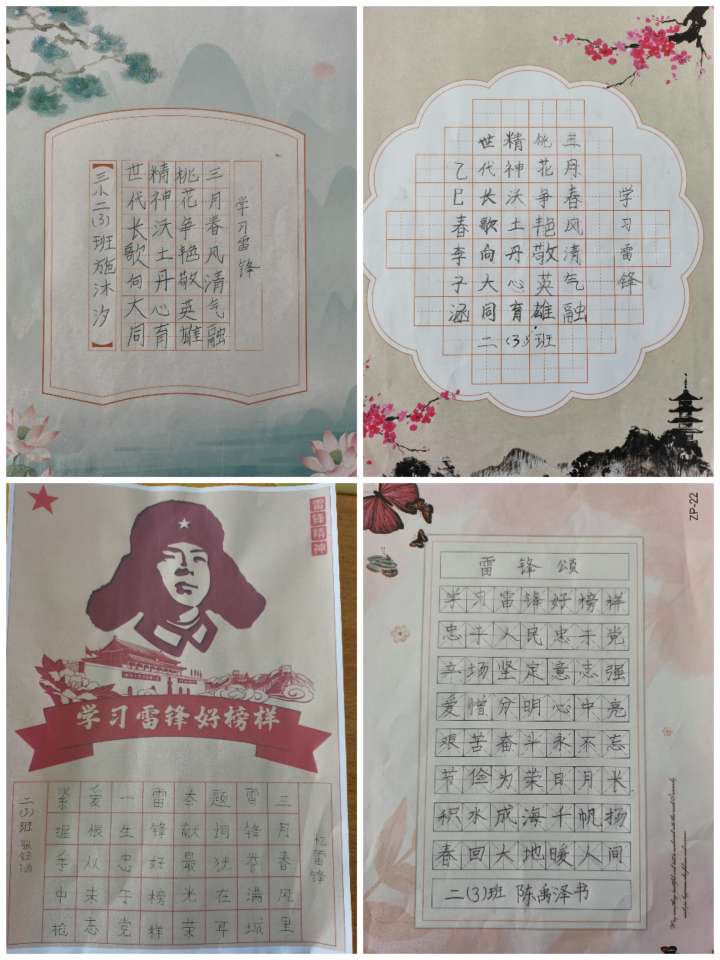 学习雷锋
三月春风清气融
桃花争艳敬英雄
精神沃土丹心育
世代长歌向大同
【三小二(3)班施沐汐】
学习雷锋
三月春风清气融
桃花争艳敬英雄
精神沃土丹心育
世代长歌向大同
乙巳春李子涵
二(3)班
雷锋精神
学习雷锋好榜样
忆雷锋
三月春风里
雷锋满城
题词犹在耳
奉献最光荣
雷锋好榜样
一生忠于党
爱恨从未忘
紧握手中枪
二(3)班
ZP-22
雷锋颂
学习雷锋好榜样
忠于人民忠于党
立场坚定意志强
爱憎分明心中亮
艰苦奋斗永不忘
节俭为荣日月长
积水成海千帆扬
春回大地暖人间
二(3)班 陈禹泽书